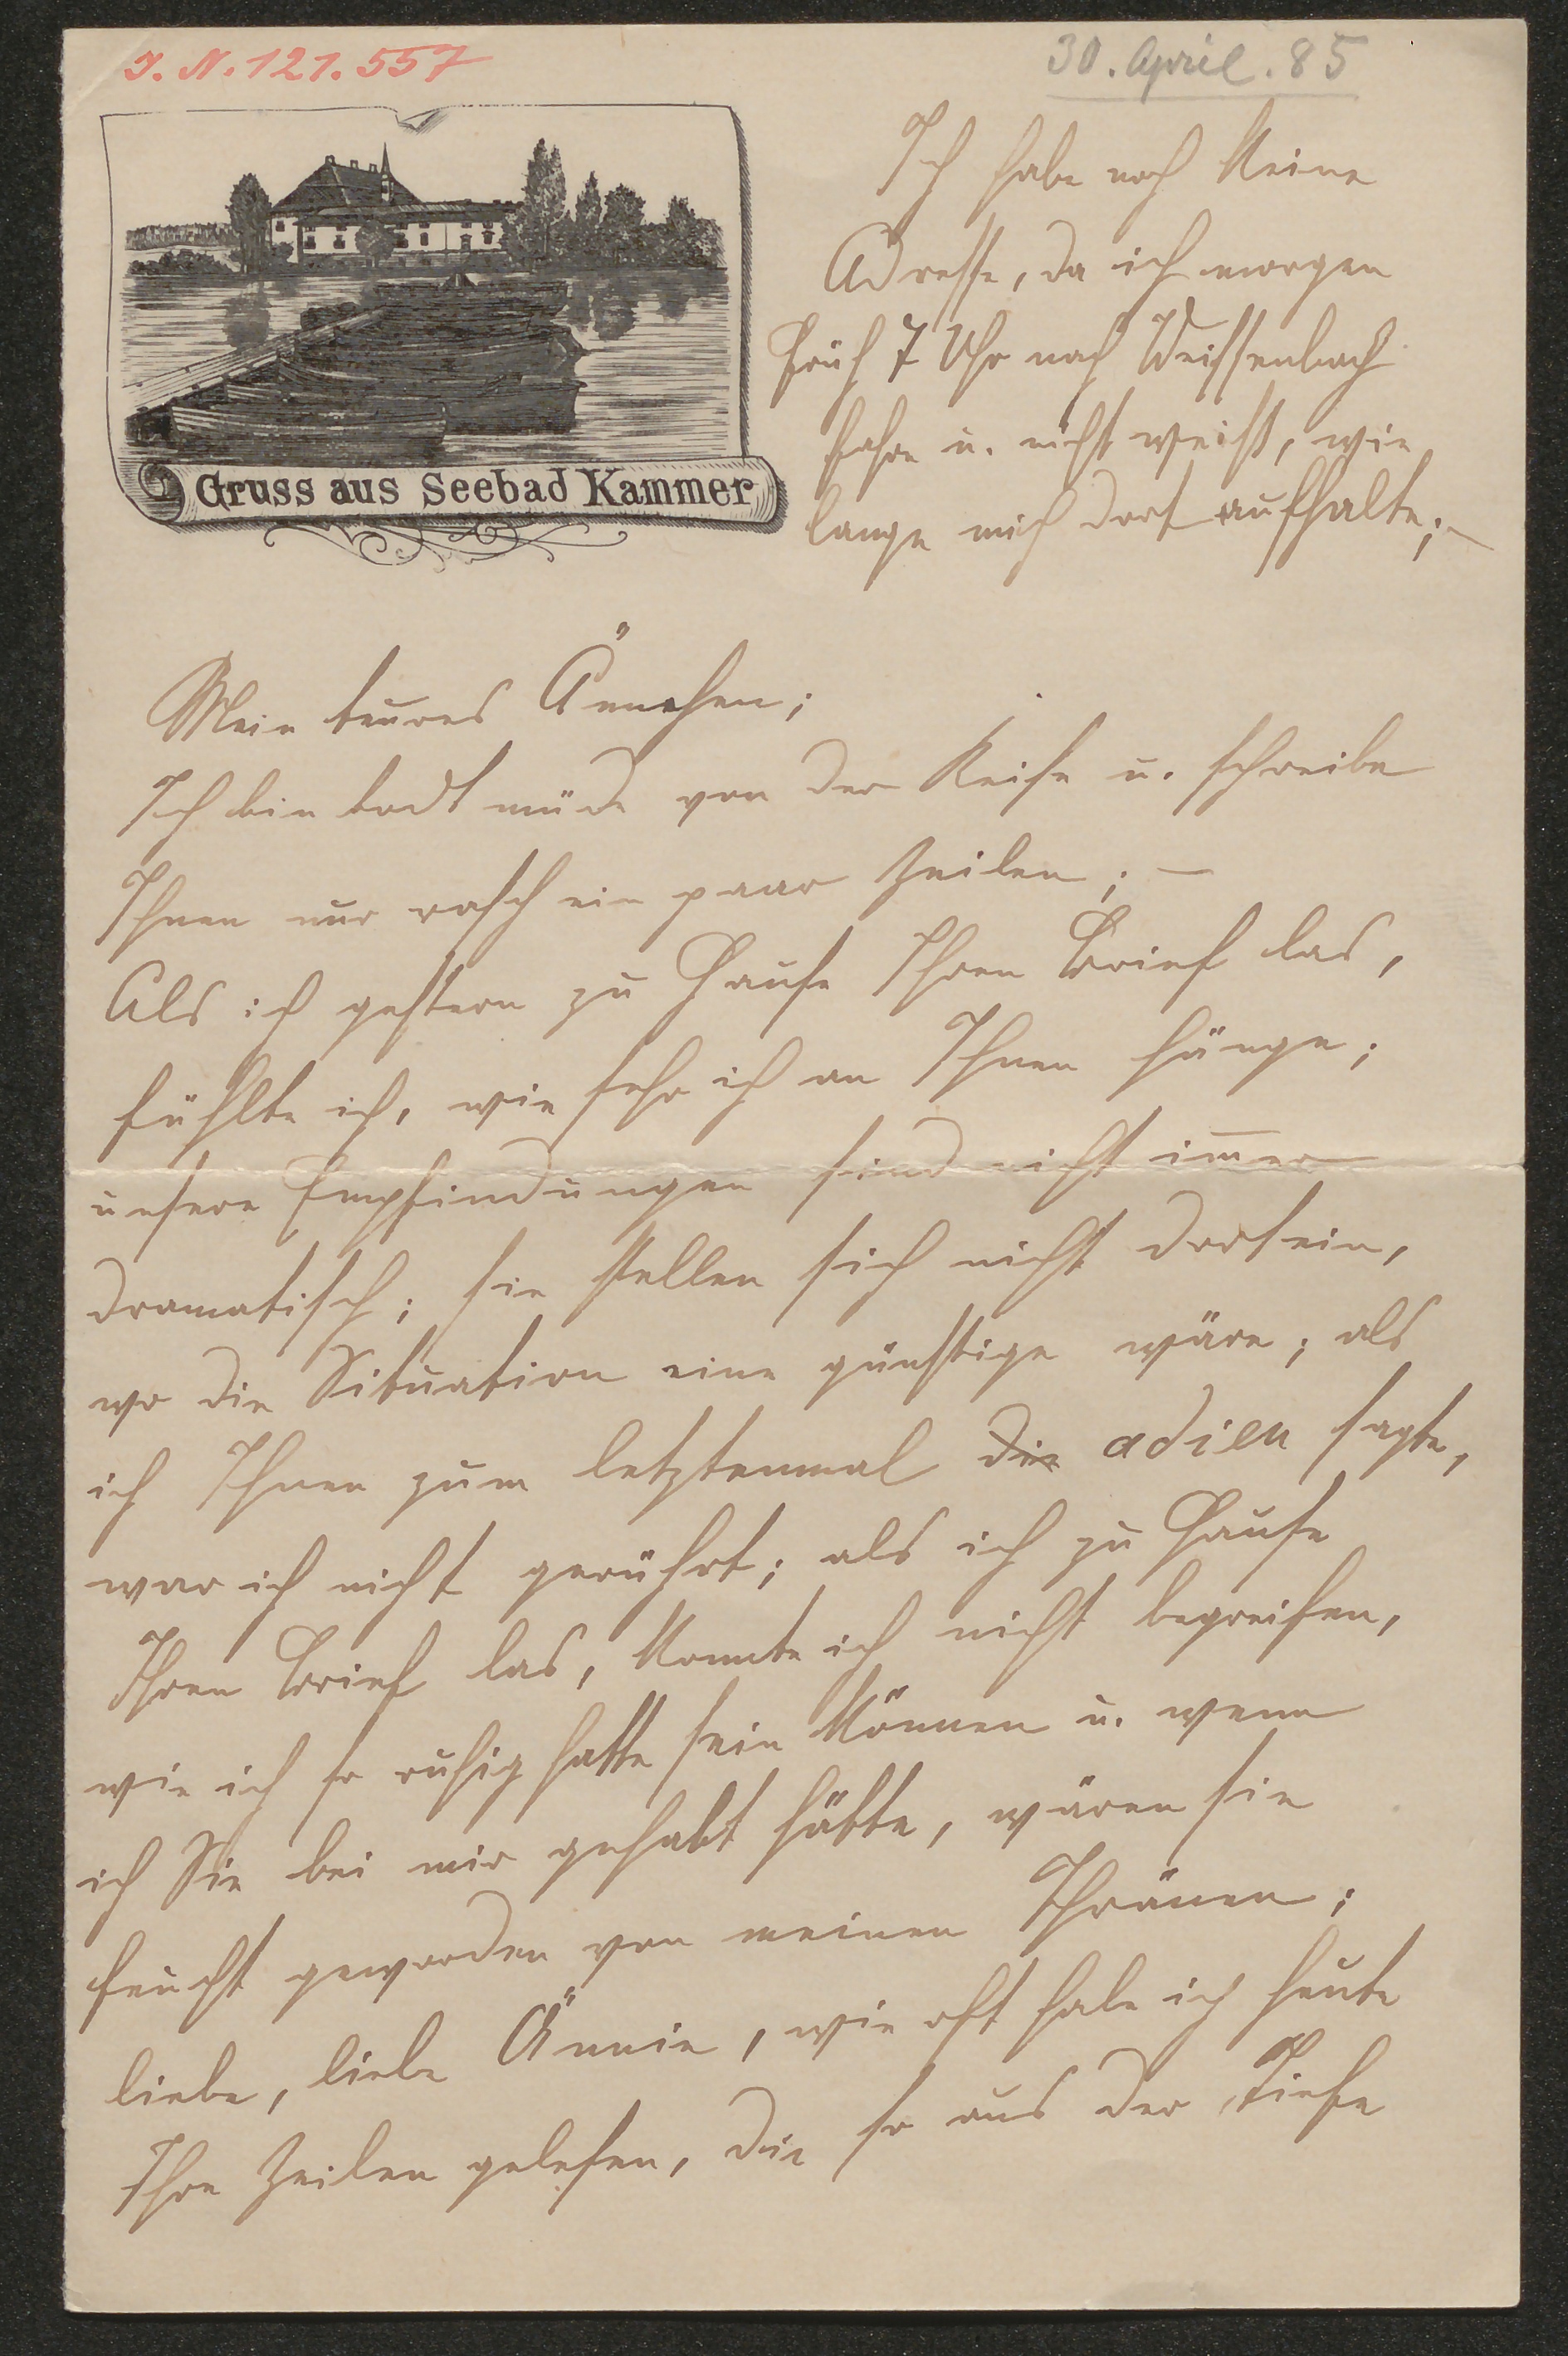 J. N. 121.557
30. April. 85
Gruss aus Seebad Kammer
Ich habe noch keine
Adresse, da ich morgen
früh 7 Uhr nach Weissenbach
fahre u. nicht weiß, wie
lange mich dort aufhalte; –
Mein teures Ännchen;
Ich bin todt müde von der Reise u. schreibe
Ihnen nur rasch ein paar Zeilen; –
Als ich gestern zu Hause Ihren Brief las,
fühlte ich, wie sehr ich an Ihnen hänge;
unsere Empfindungen sind nicht im̅er
dramatisch; sie stellen sich nicht dort ein,
wo die Situation eine günstige wäre; als
ich Ihnen zum letztenmal die adieu sagte,
war ich nicht gerührt; als ich zu Hause
Ihren Brief las, konnte ich nicht begreifen,
wie ich so ruhig hatte sein können u. wenn
ich Sie bei mir gehabt hätte, wären sie
feucht geworden von meinen Thränen;
liebe, liebe Ännie, wie oft habe ich heute
Ihre Zeilen gelesen, die so aus der Tiefe